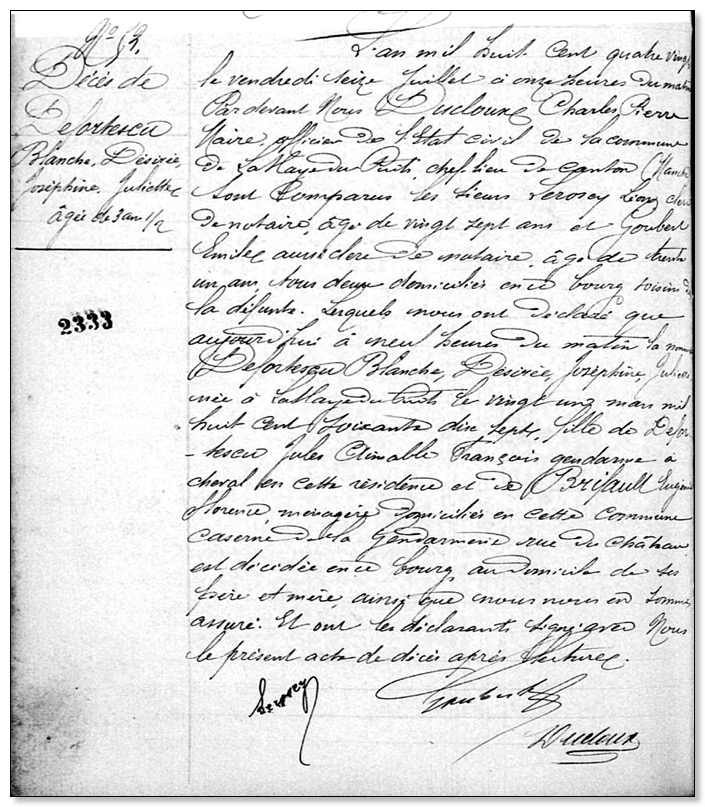 N° 59.
Décès de
Defortescu
Blanche, Désirée,
Joséphine, Juliette
âgée de 3 ans 1/2
2333
L'an mil huit cent quatre vingt
le vendredi seize Juillet à onze heures du matin
Pardevant Nous Ducloux Charles Pierre
Maire, officier de l'Etat civil de la commune
de La Haye du Puits, chef lieu de canton (Manche)
sont comparus les sieurs Lerosey Léon, clerc
de notaire, âgé de vingt sept ans et Goubert
Emile aussi clerc de notaire, âgé de trente
un ans, tous deux domiciliés en ce bourg voisins de
la défunte. Lesquels nous ont déclaré que
aujourd'hui à neuf heures du matin la nommée
Defortescu Blanche, Désirée, Joséphine, Juliette
née à La Haye du Puits le vingt un mars mil
huit cent soixante dix sept, fille de Defor
-tescu Jules Aimable François gendarme à
cheval en cette résidence et de Brifault Eugénie
Florence, ménagère domiciliés en cette commune
caserne de la Gendarmerie rue du Château,
est décédée en ce bourg au domicile de ses
père et mère, ainsi que nous nous en sommes
assuré. Et ont les déclarants signé avec Nous
le présent acte de décès après lecture.
Lerosey
Goubert
Ducloux